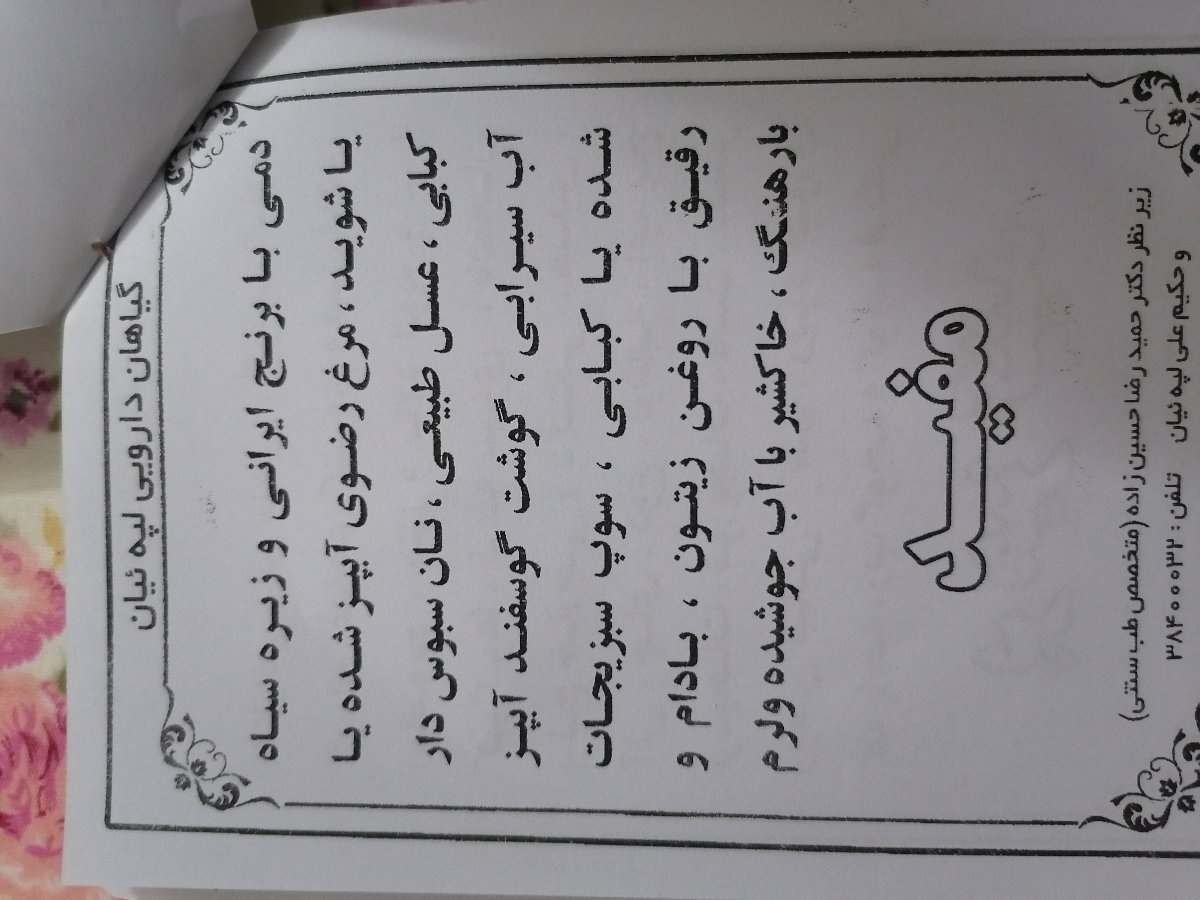 گیاهان دارویی لپه ئیان
دمی با برنج ایرانی و زیره سیاه
یا شوید، مرغ رضوی آبپز شده یا
کبابی، عسل طبیعی، نان سبوس دار
آب سیرابی، گوشت گوسفند آبپز
شده یا کبابی، سوپ سبزیجات
رقیق با روغن زیتون، بادام و
بارهنگ، خاکشیر با آب جوشیده ولرم
مفید
زیر نظر دکتر حمید رضا حسین زاده (متخصص طب سنتی)
و حکیم علی لپه ئیان تلفن : ۳۸۴۰۰۰۳۲